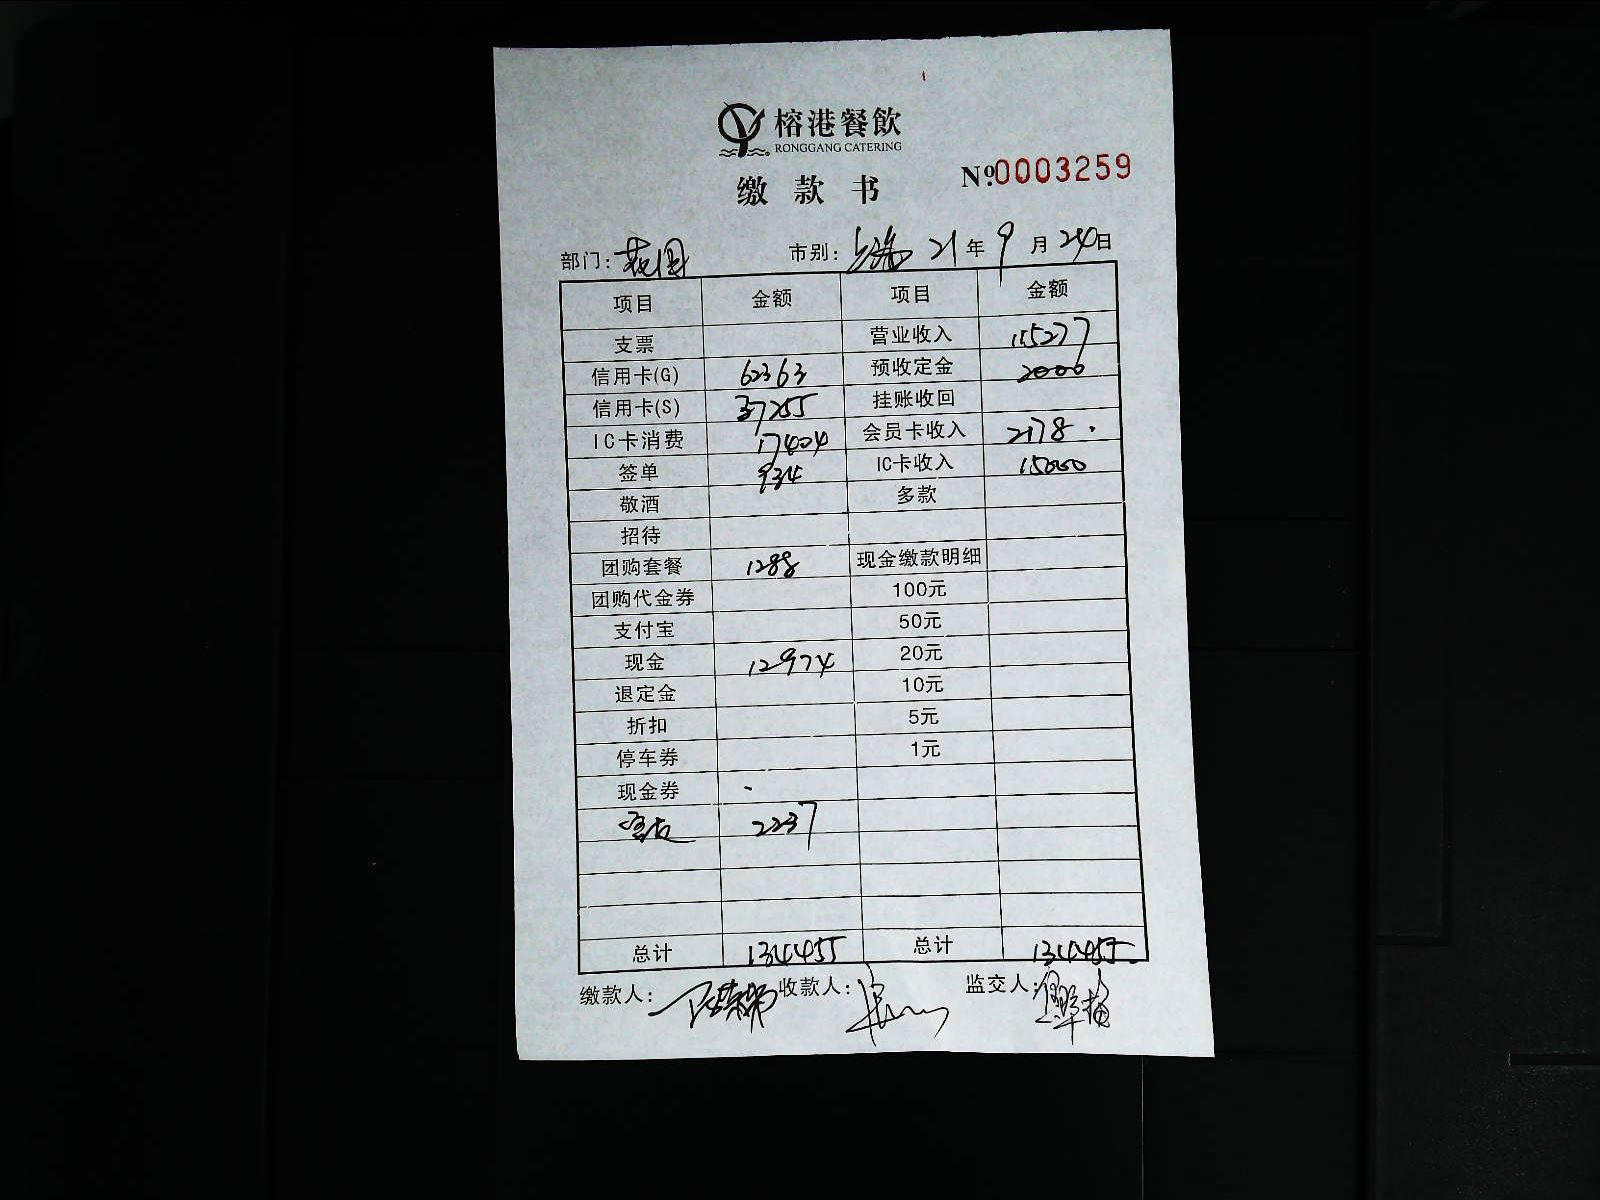 榕港餐飲
RONGGANG CATERING
缴款书
№0003259
部门: 花园 市别: 21年9月24日
项目 金额 项目 金额
支票 营业收入 115277
信用卡(G) 62363 预收定金 2000
信用卡(S) 37255 挂账收回
IC卡消费 17404 会员卡收入 2178.
签单 934 IC卡收入 15000
敬酒 多款
招待
团购套餐 1288 现金缴款明细
团购代金券 100元
支付宝 50元
现金 12974 20元
退定金 10元
折扣 5元
停车券 1元
现金券
2237
总计 134455 总计 134455
缴款人: 收款人: 监交人: